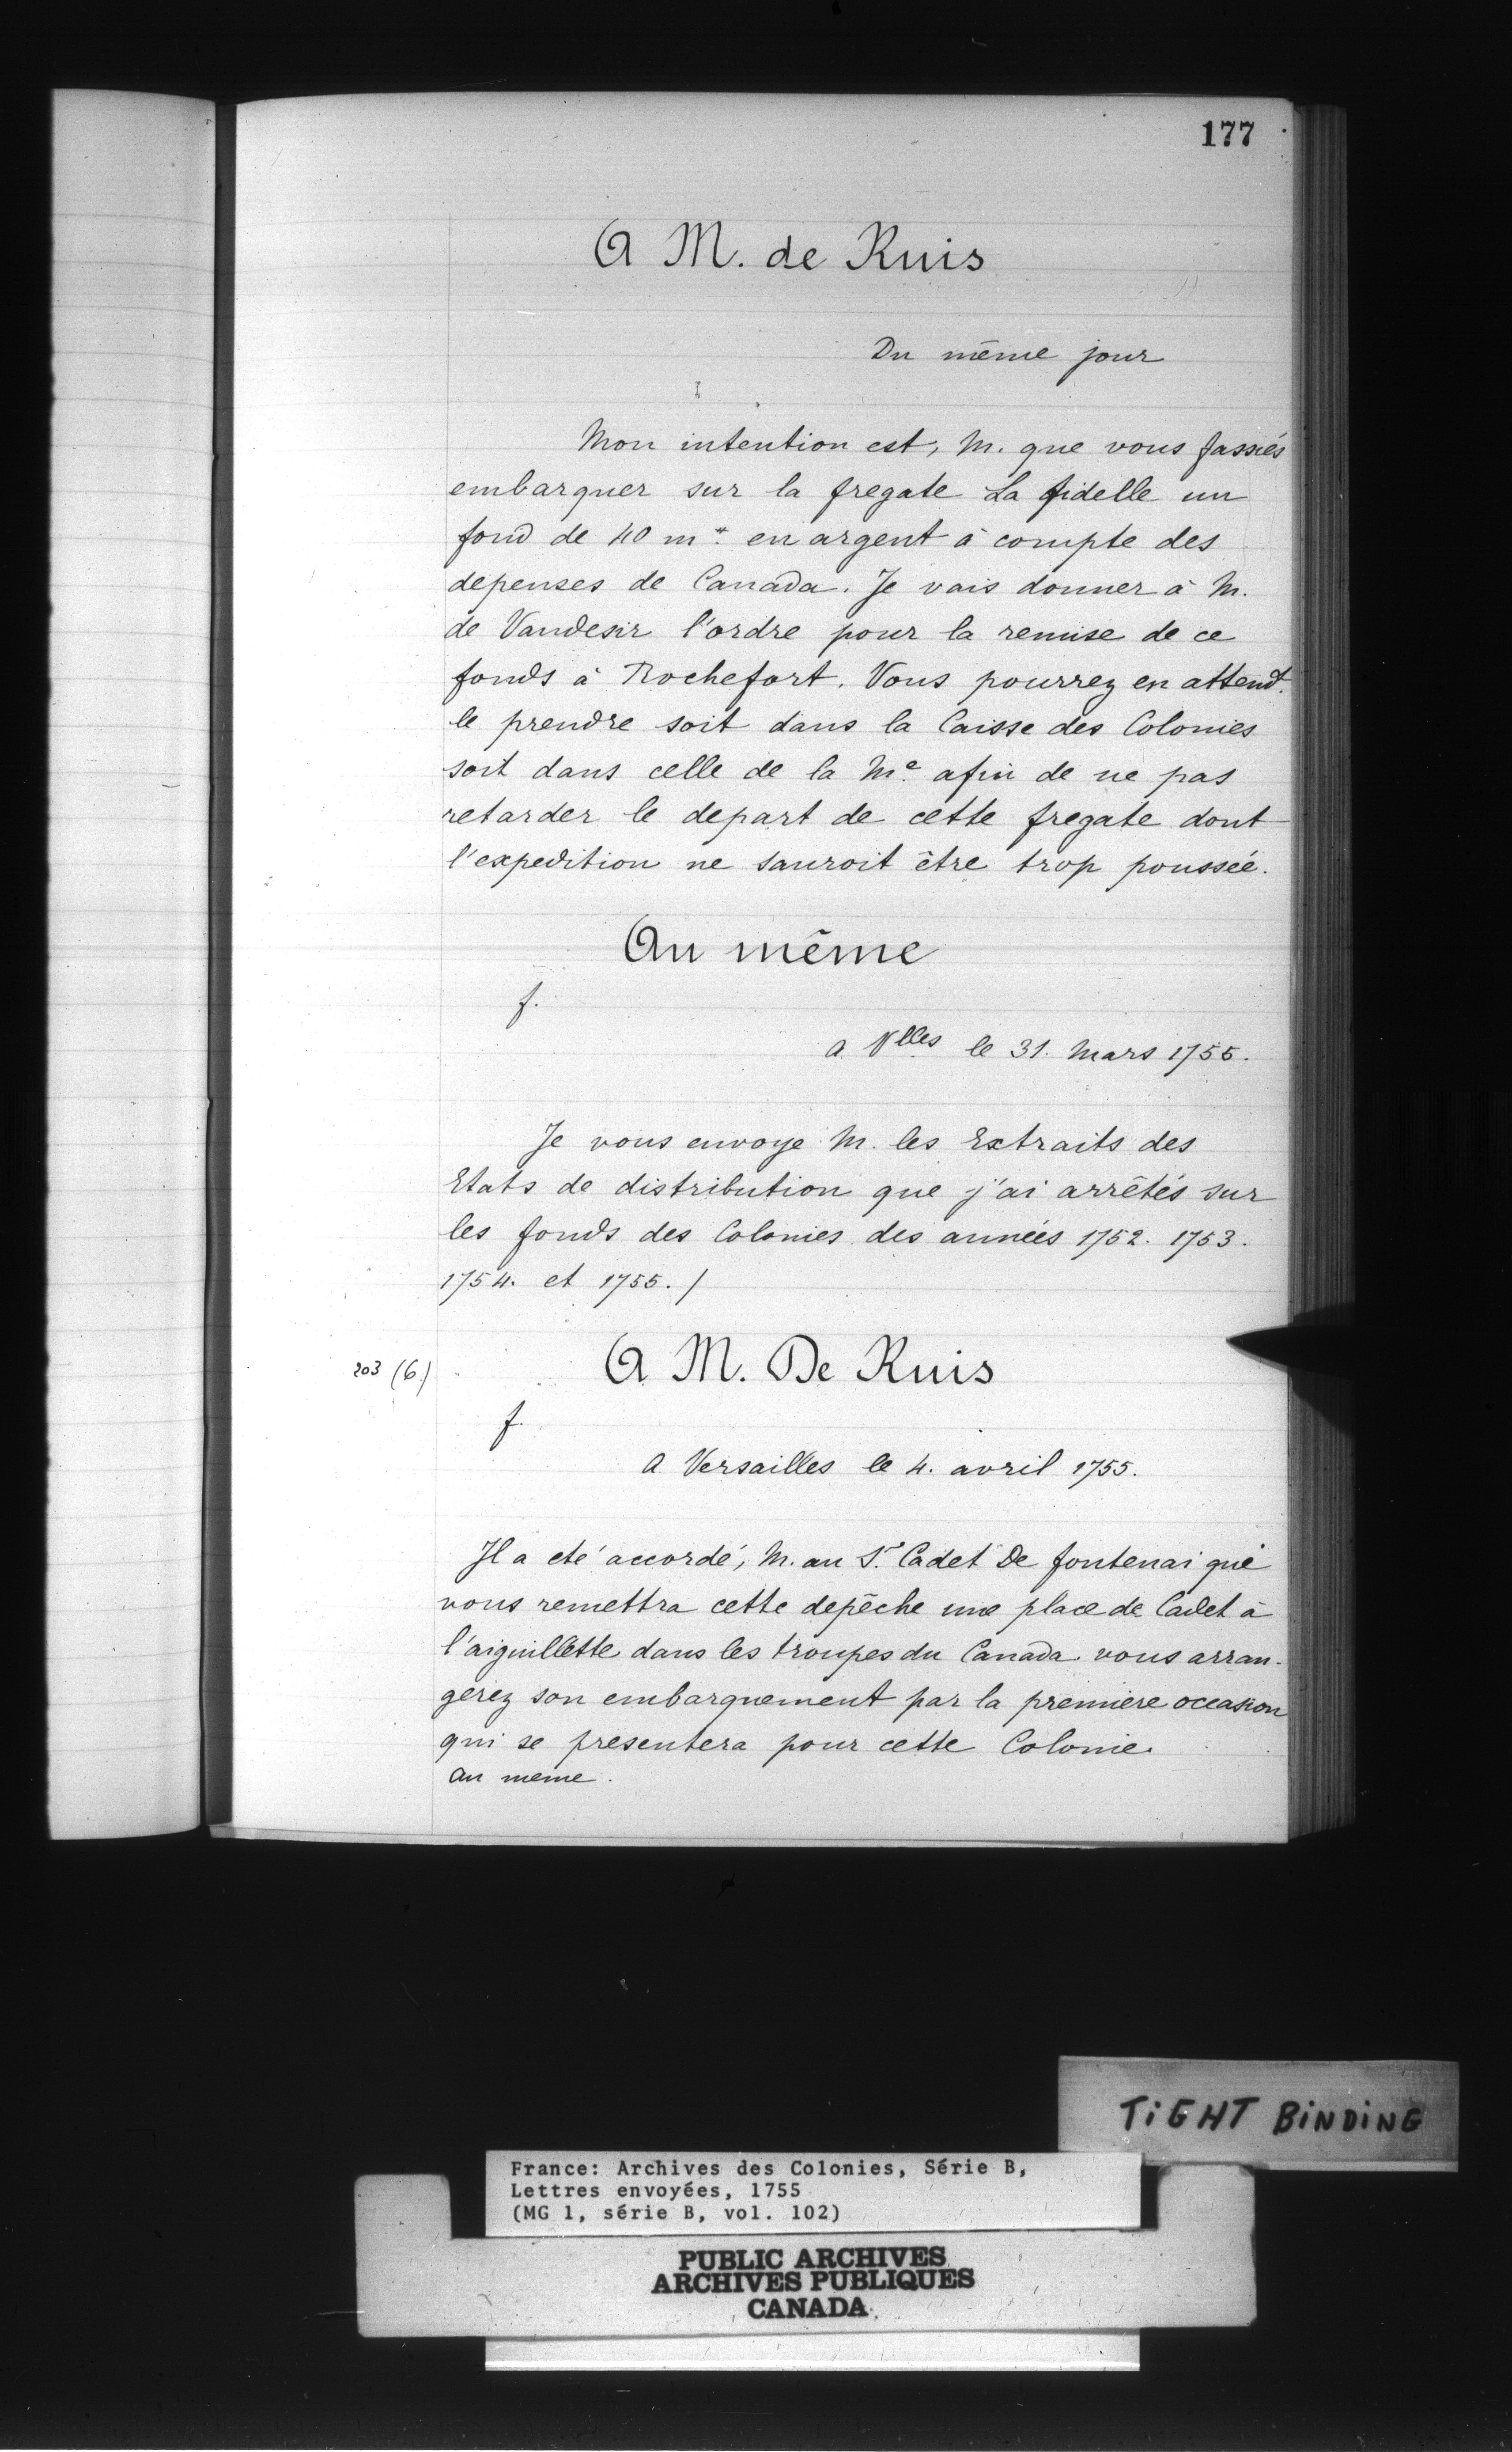 177
A M. de Ruis
Du même jour
Mon intention est, M. que vous fassiés
embarquer sur la fregate La fidelle un
fond de 40 m.# en argent à compte des
depenses de Canada. Je vais donner à M.
de Vaudesir l'ordre pour la remise de ce
fonds à Rochefort. Vous pourrez en attendt.
le prendre soit dans la Caisse des Colonies
soit dans celle de la Me. afin de ne pas
retarder le depart de cette fregate dont
l'expedition ne sauroit être trop poussée.
Au même
f.
a Vlles le 31. Mars 1755.
Je vous envoye M. les Extraits des
Etats de distribution que j'ai arrêtés sur
les fonds des Colonies des années 1752. 1753.
1754. et 1755. /
203 (6.) A M. De Ruis
f.
A Versailles le 4. avril 1755.
Il a eté accordé, M. au Sr. Cadet De fontenai qui
vous remettra cette depêche une place de Cadet à
l'aiguillette dans les troupes du Canada vous arran-
gerez son embarquement par la premiere occasion
qui se presentera pour cette Colonie.
au meme.
TiGHT BiNDiNG
France: Archives des Colonies, Série B,
Lettres envoyées, 1755
(MG 1, série B, vol. 102)
PUBLIC ARCHIVES
ARCHIVES PUBLIQUES
CANADA